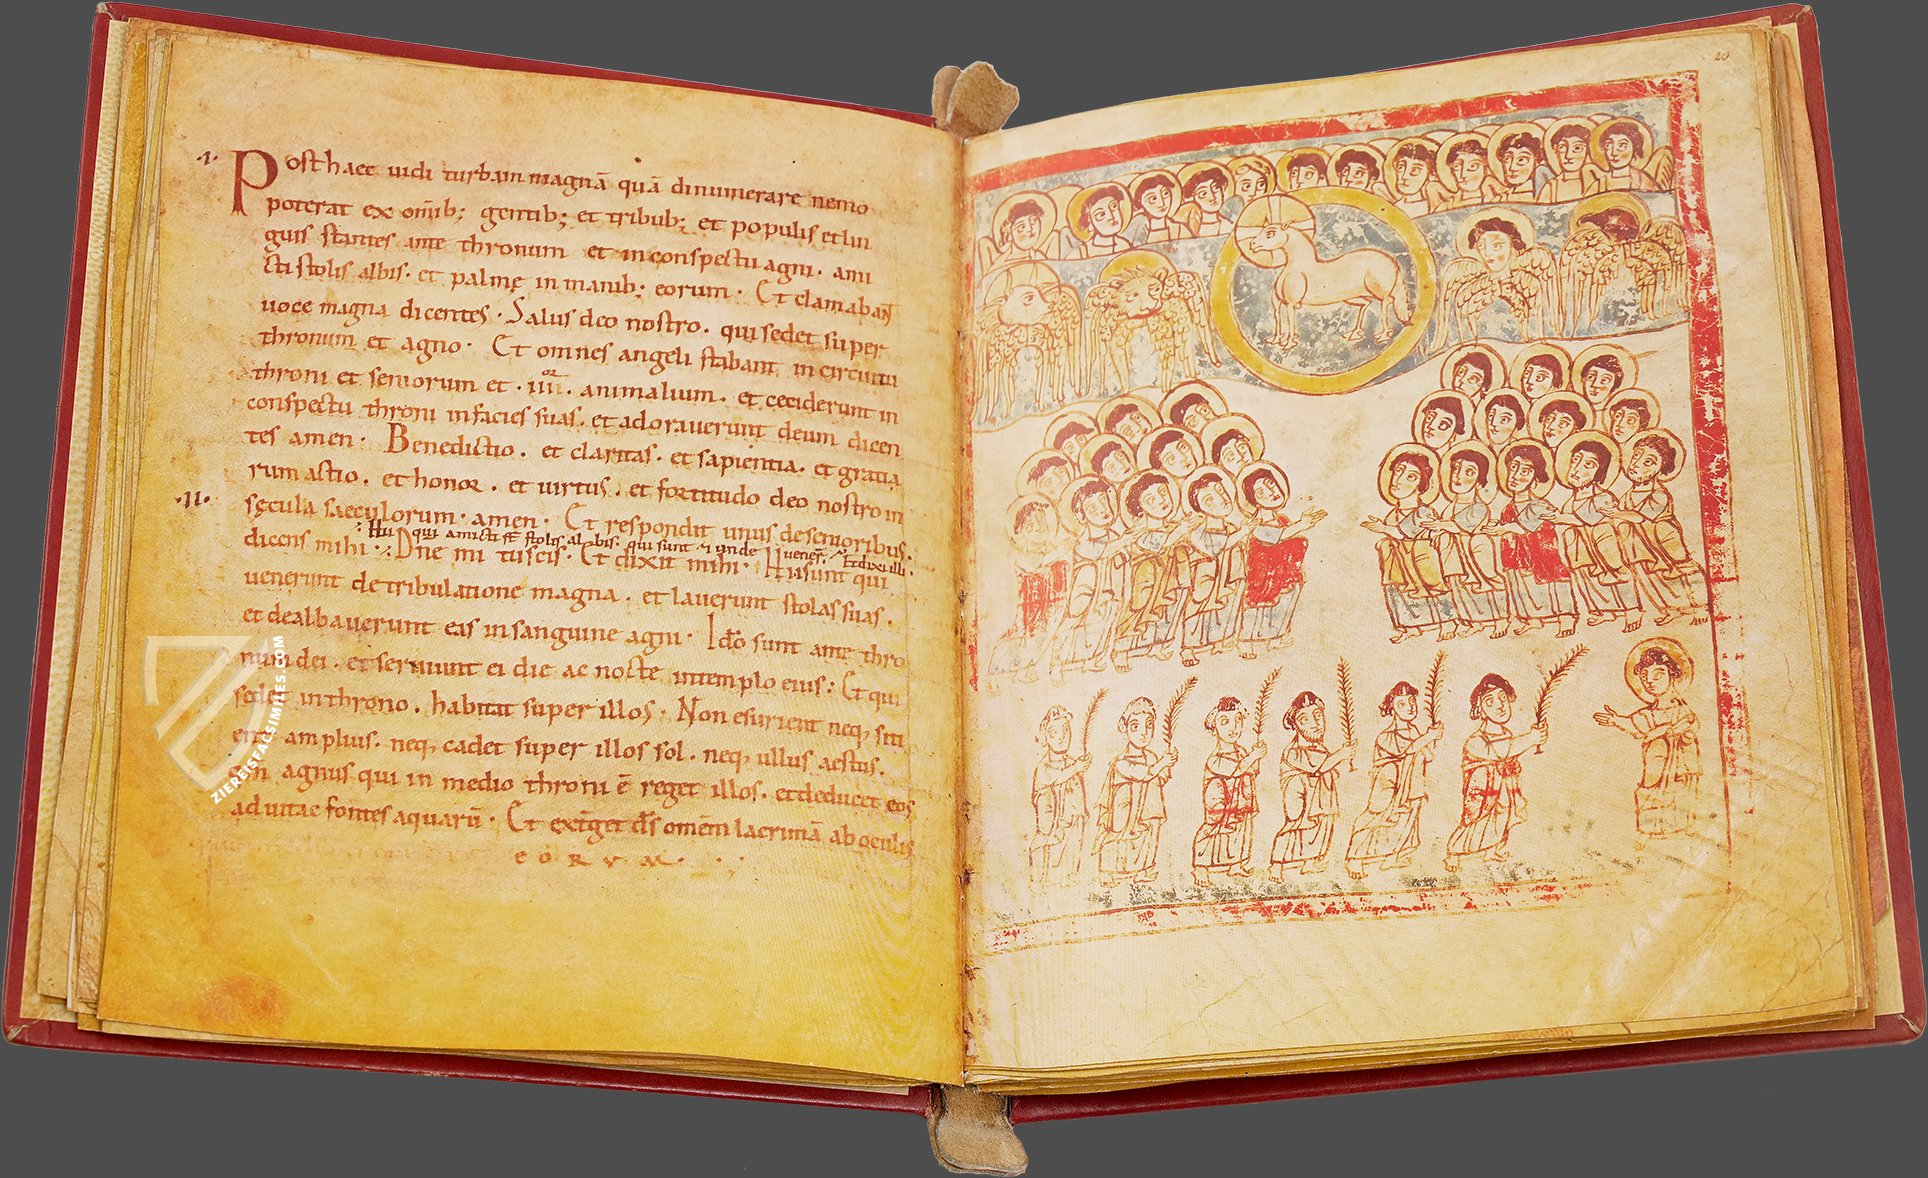 ·I· Post haec uidi turbam magnā quā dinumerare nemo
poterat ex om̅ib; gentib; et tribub; et populis et lin
guis stantes ante thronum et in conspectu agni · ami
cti stolis albis · et palmę in manib; eorum · Et clamaban̅
uoce magna dicentes · Salus deo nostro · qui sedet super
thronum et agno · Et omnes angeli stabant in circuitu
throni et seniorum et · iiii or · animalium · et ceciderunt in
conspectu throni in facies suas · et adorauerunt deum dicen
tes amen · Benedictio · et claritas · et sapientia · et gratia
rum actio · et honor · et uirtus · et fortitudo deo nostro in
·II· sęcula saeculorum · amen · Et respondit unus de senioribus ·
Hii qui amicti s̅t̅ stolis albis · qui sunt & unde uener̅ · Et dixi illi ·
dicens mihi · Dn̅e mi tu scis · Et dixit mihi · Hii sunt qui
uenerunt de tribulatione magna · et lauerunt stolas suas ·
et dealbauerunt eas in sanguine agni · Ido̅ sunt ante thro
num dei · et seruiunt ei die ac nocte in templo eius : Et qui
sedet in throno · habitat super illos · Non esurient neq; siti
ent amplius · neq; cadet super illos sol · neq; ullus aestus ·
agnus qui in medio throni ē reget illos · et deducet eos
ad uitae fontes aquarū · Et exterget d̅s̅ omēm lacrimā ab oculis
EORUM
20
ZIEREISFACSIMILES.COM